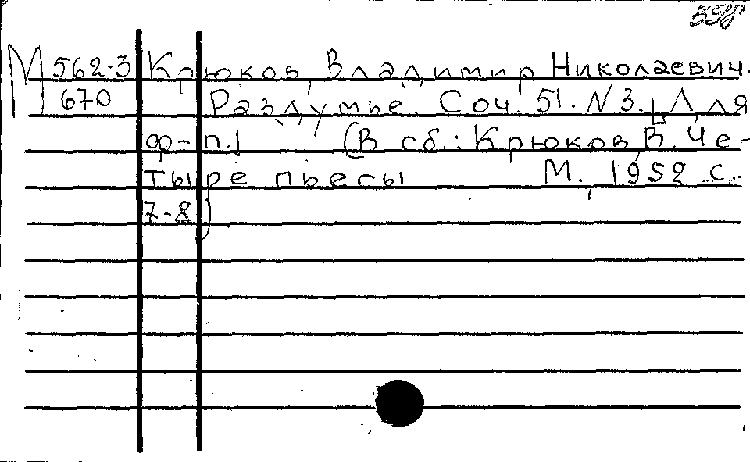 М 562-3 Крюков, Владимир Николаевич.
670 Раздумье. Соч. 51. N 3. [Для
ф-п.] (В сб.: Крюков, В. Че-
тыре пьесы М., 1952 с.
7-8)